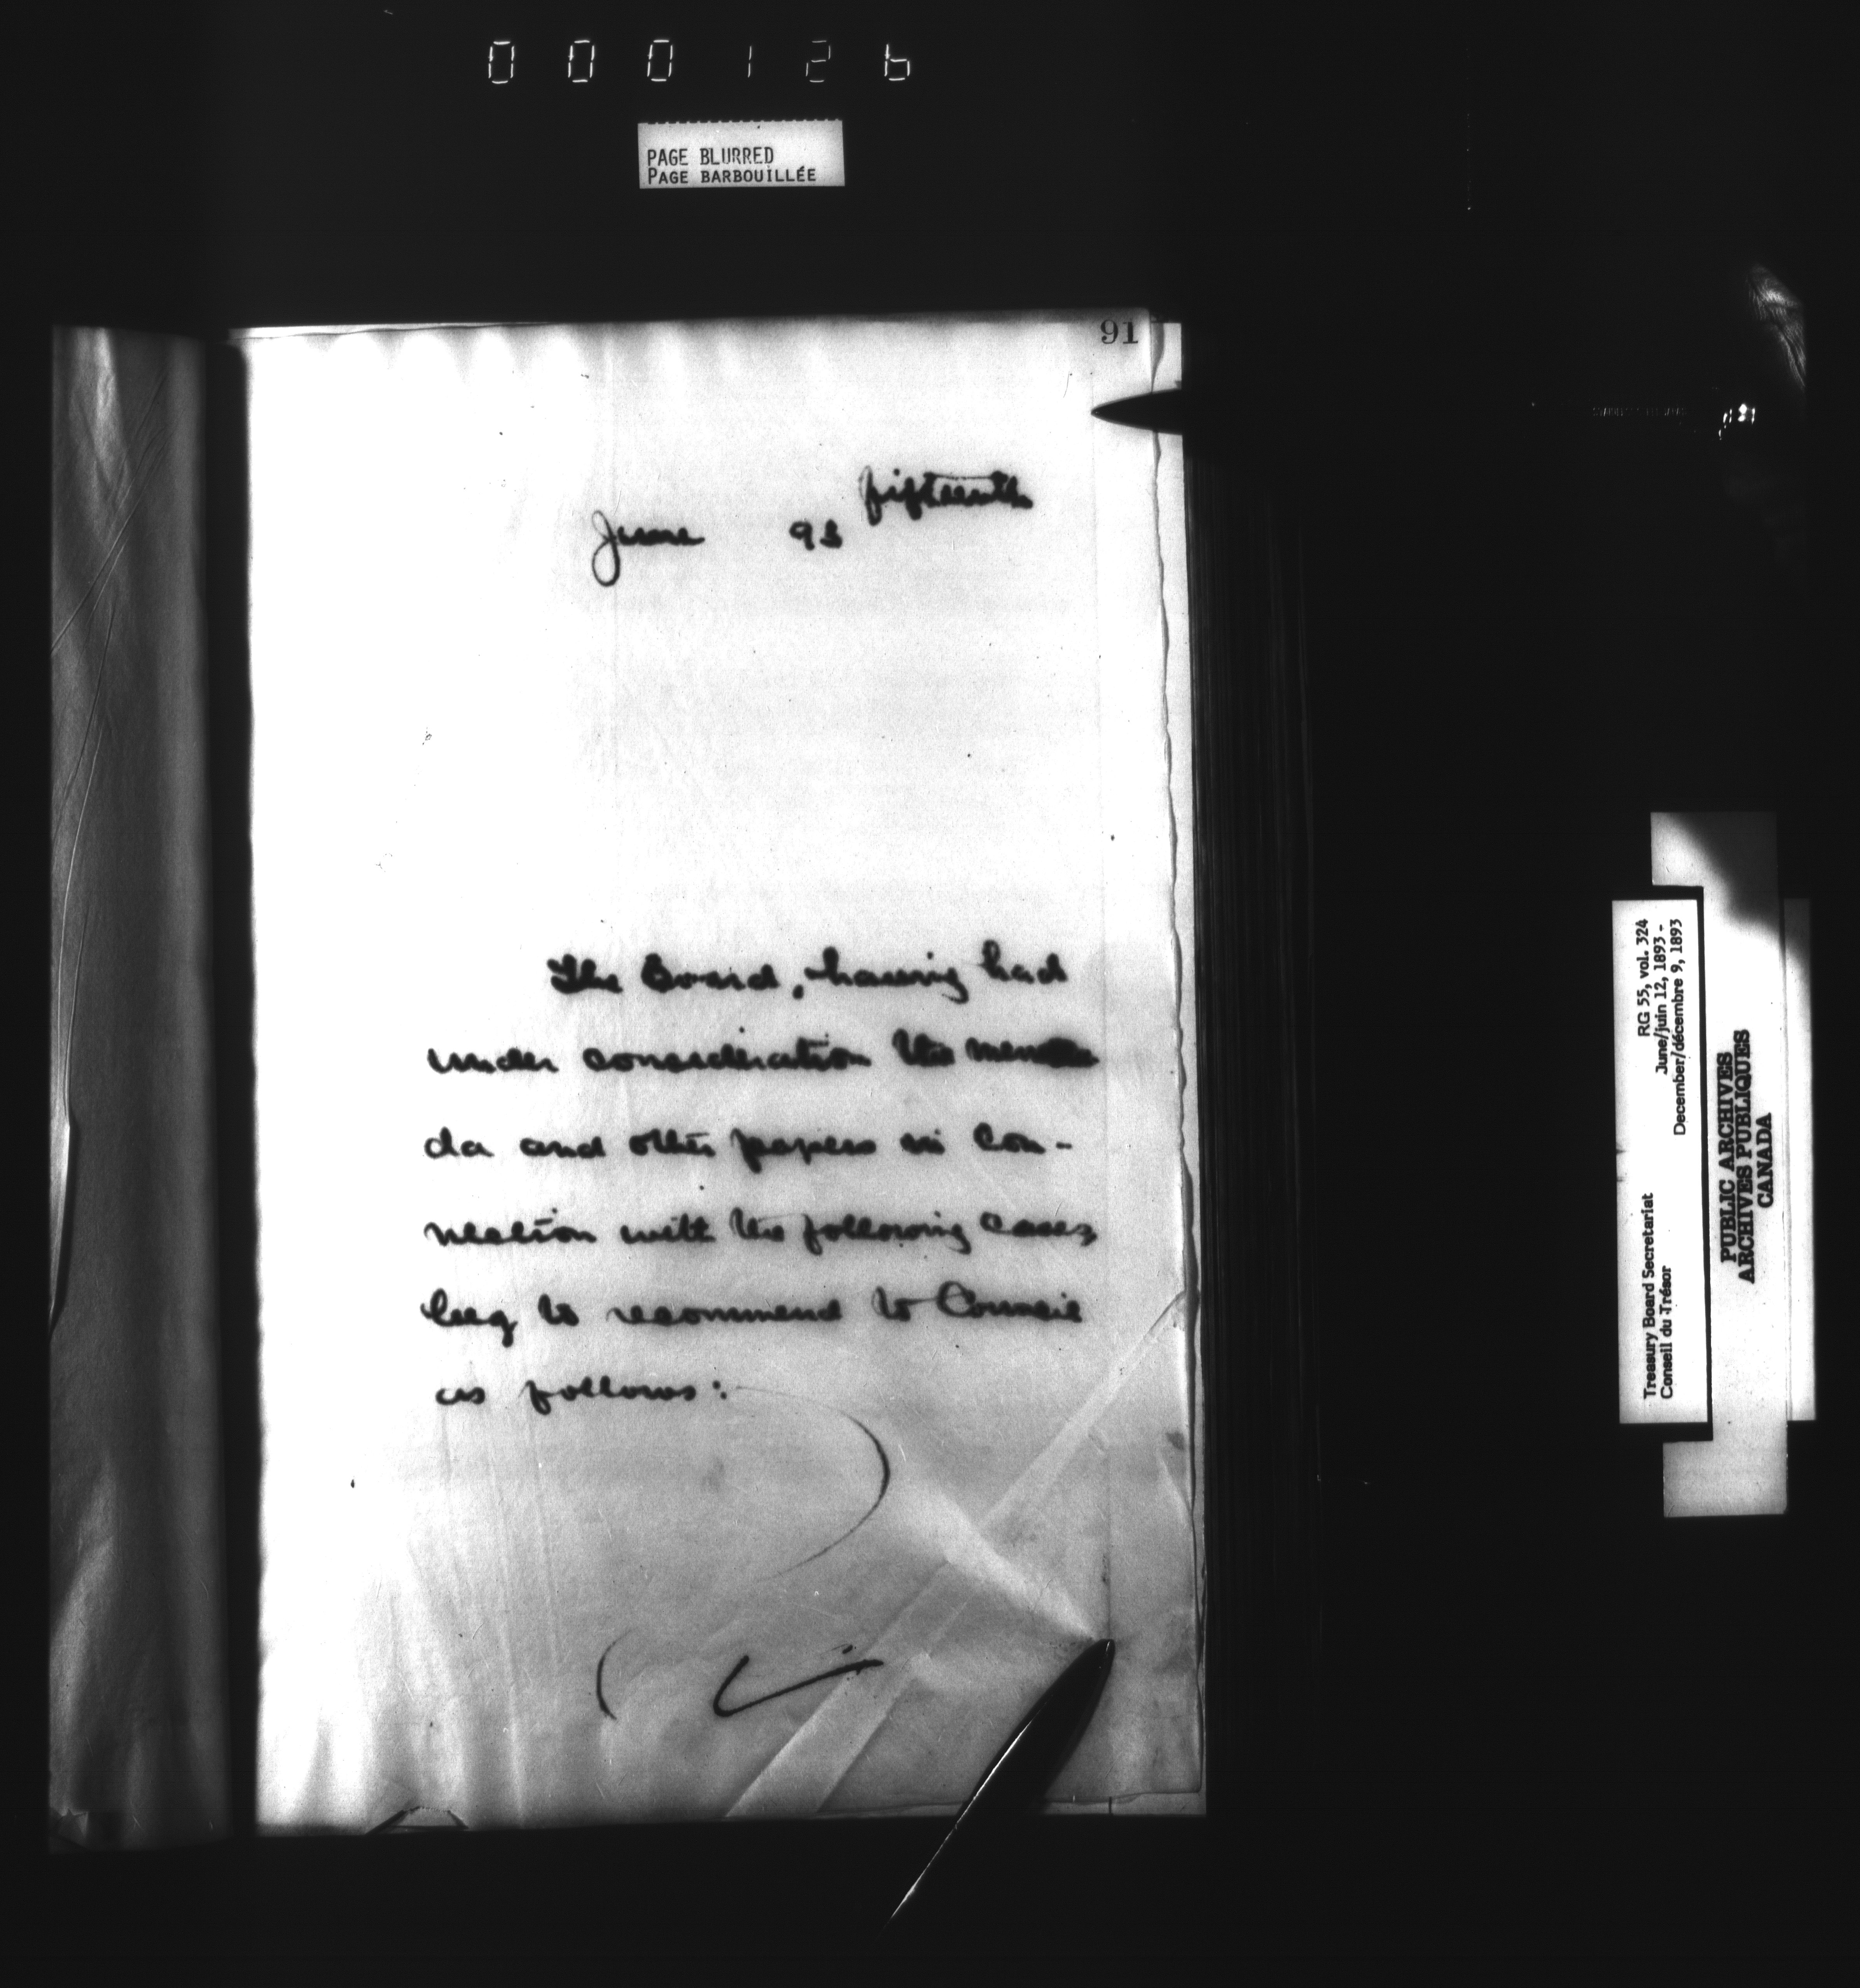 000126
PAGE BLURRED
PAGE BARBOUILLÉE
91
fifteenth
June 93
The Board, having had
under consideration the memoran
da and other papers in Con-
nection with the following cases,
beg to recommend to Council
as follows:
RG 55, vol. 324
June/juin 12, 1893 -
December/décembre 9, 1893
Treasury Board Secretariat
Conseil du Trésor
PUBLIC ARCHIVES
ARCHIVES PUBLIQUES
CANADA